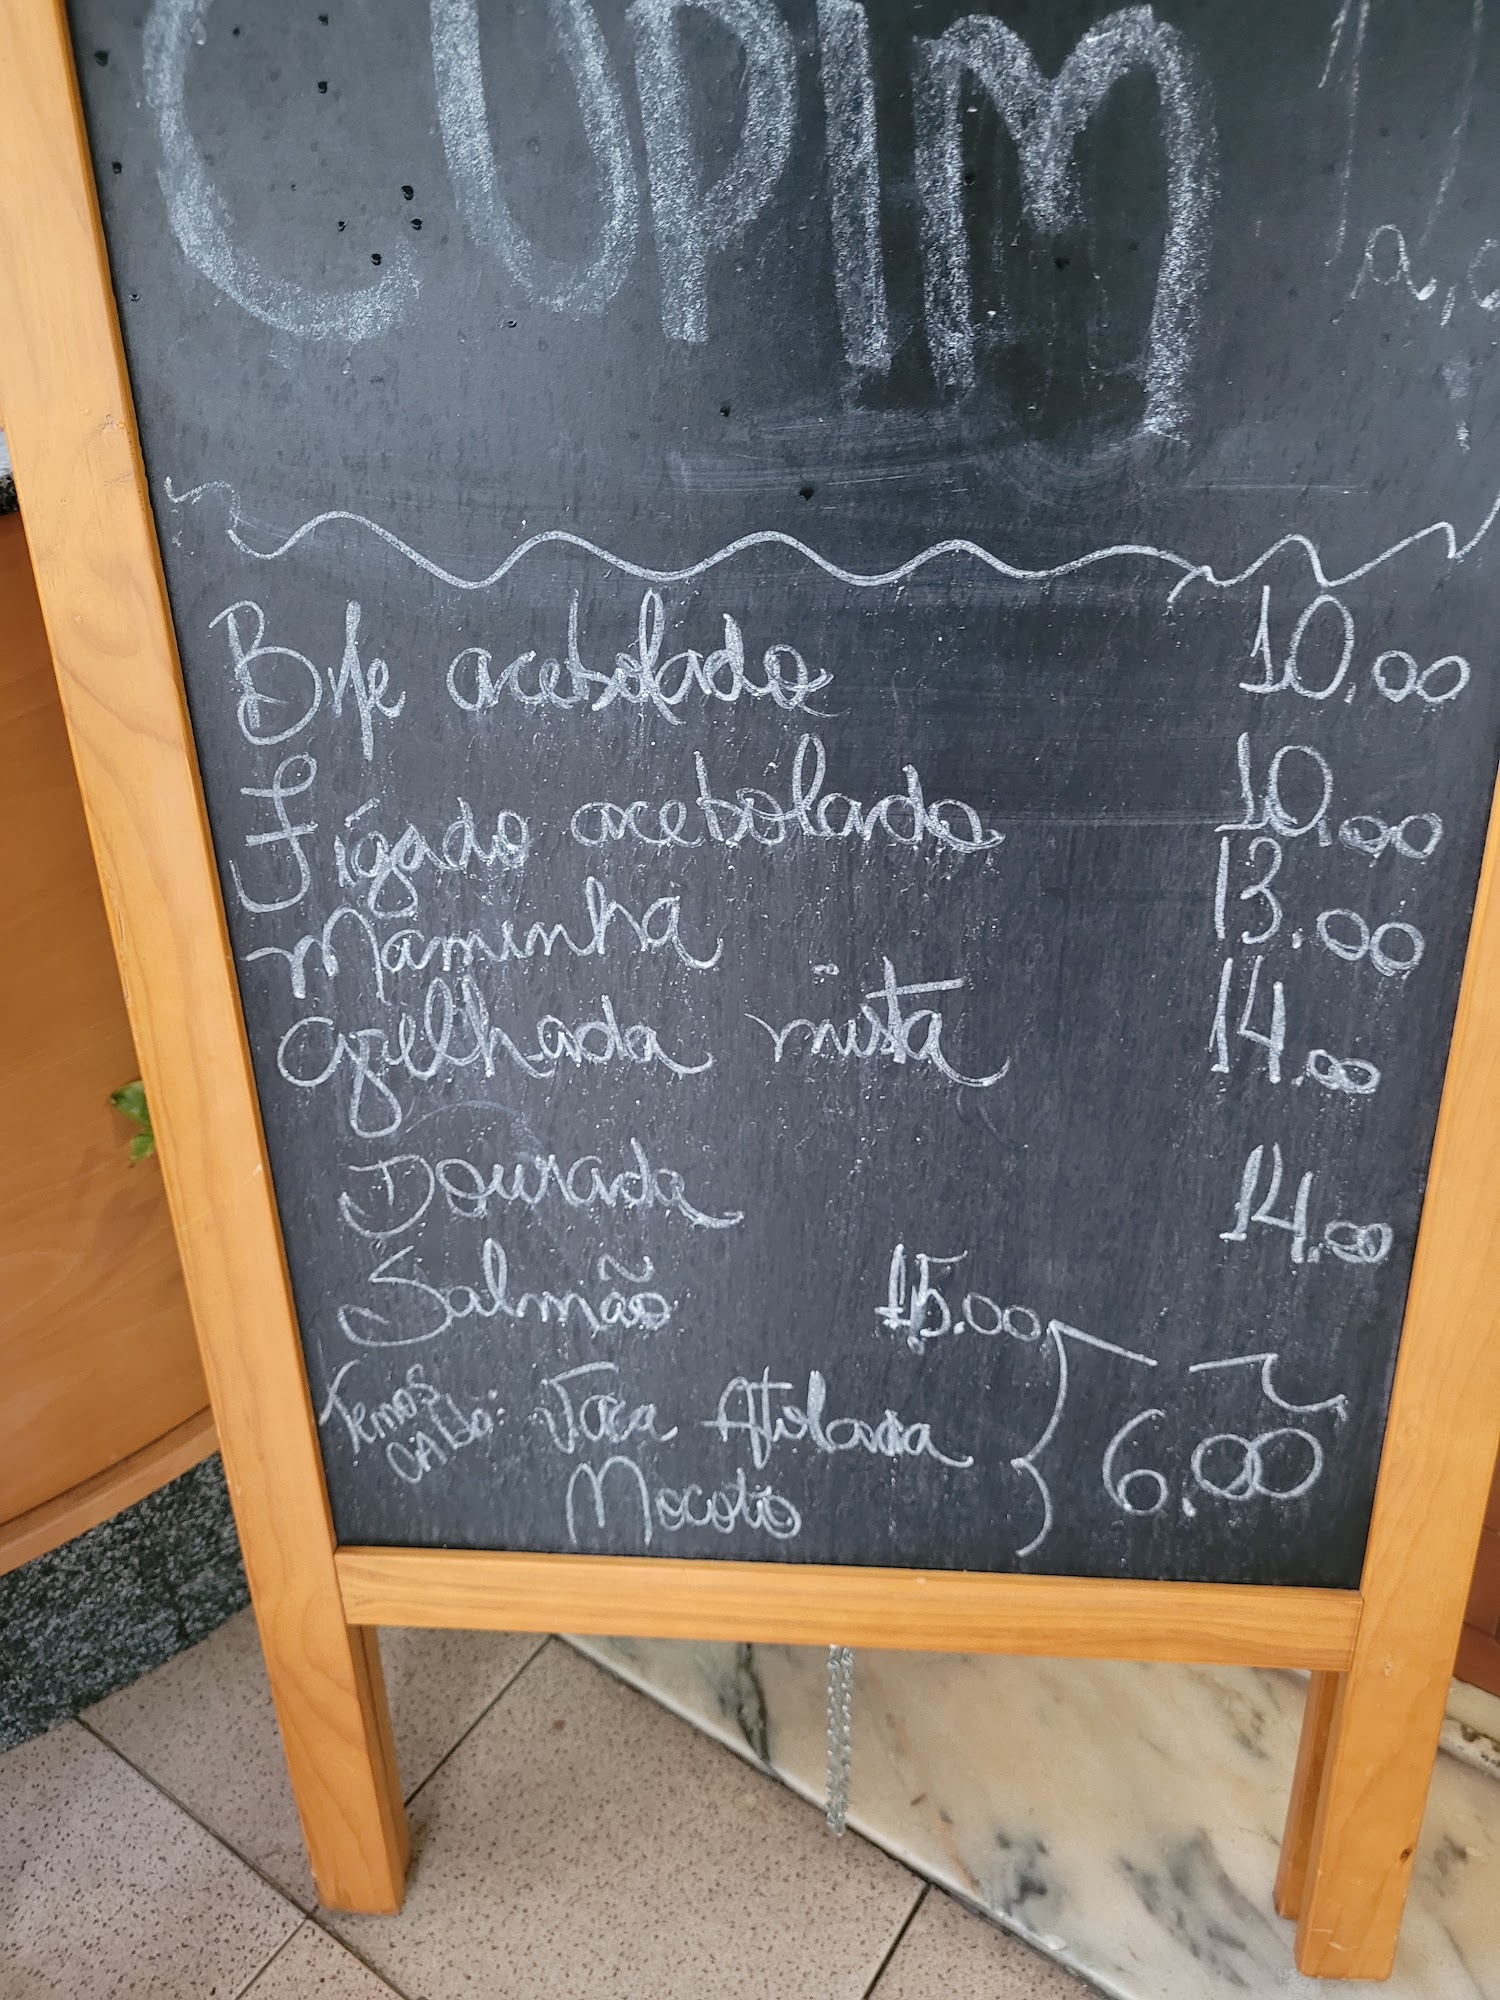 CUPIM
Bife acebolado 10,00
Fígado acebolado 10,00
Maminha 13.00
Grelhada mista 14.00
Dourada 14.00
Salmão 15.00
Temos Caldo: Vaca Atolada
Mocotó 6,00